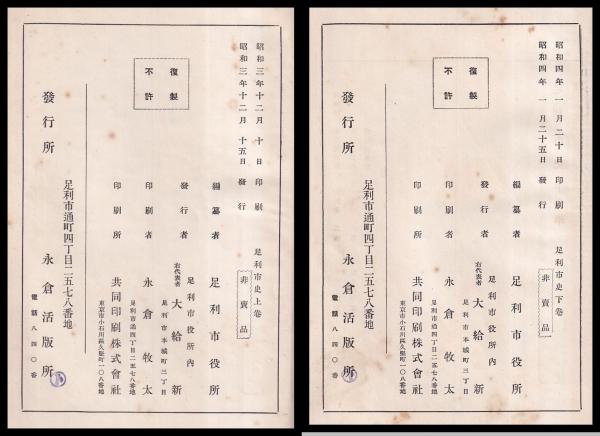 昭和三年十二月 十日 印刷
昭和三年十二月 十五日 發行
足利市史上巻
非賣品
複製
不許
編纂者 足利市役所
足利市役所內
發行者 右代表者 大給新
足利市本城町三丁目
印刷者 永倉牧太
足利市通四丁目二五七八番地
印刷所 共同印刷株式會社
東京市小石川區久堅町一〇八番地
足利市通町四丁目二五七八番地
發行所 永倉活版所
電話八四〇番
昭和四年 一月二十日 印刷
昭和四年 一月二十五日 發行
足利市史下巻
非賣品
複製
不許
編纂者 足利市役所
足利市役所內
發行者 右代表者 大給新
足利市本城町三丁目
印刷者 永倉牧太
足利市通四丁目二五七八番地
印刷所 共同印刷株式會社
東京市小石川區久堅町一〇八番地
足利市通町四丁目二五七八番地
發行所 永倉活版所
電話八四〇番